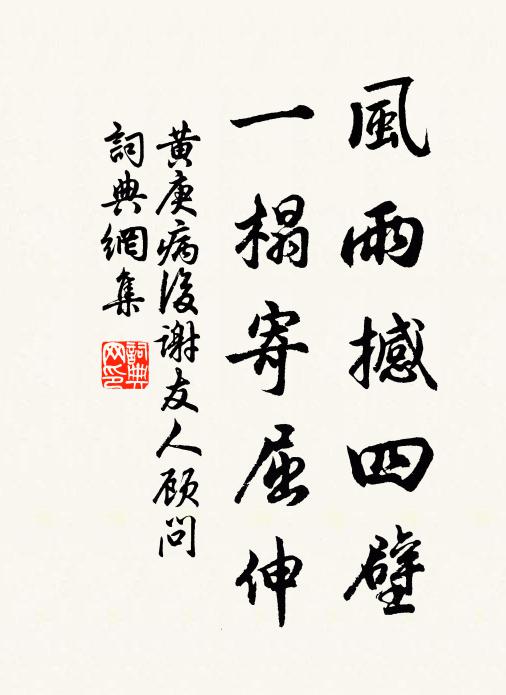 風雨撼四壁
一榻寄屈伸
黄庚病後谢友人顾问
詞典網集
詞典网印